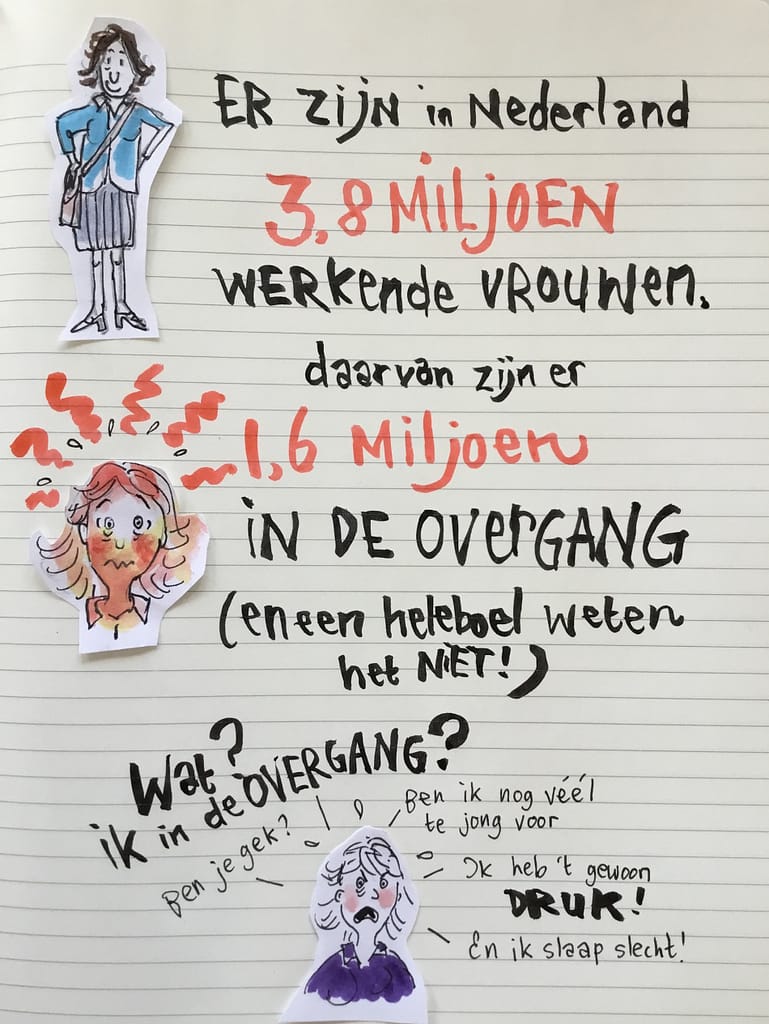 ER ZIJN in Nederland
3,8 MILJOEN
WERKende VROUWen.
daarvan zijn er
1,6 Miljoen
iN DE OVerGANG
(en een heleboel weten
het NIET!)
Wat?
ik in de OVERGANG?
Ben je gek?
Ben ik nog véél
te jong voor
Ik heb 't gewoon
DRUK!
En ik slaap slecht!